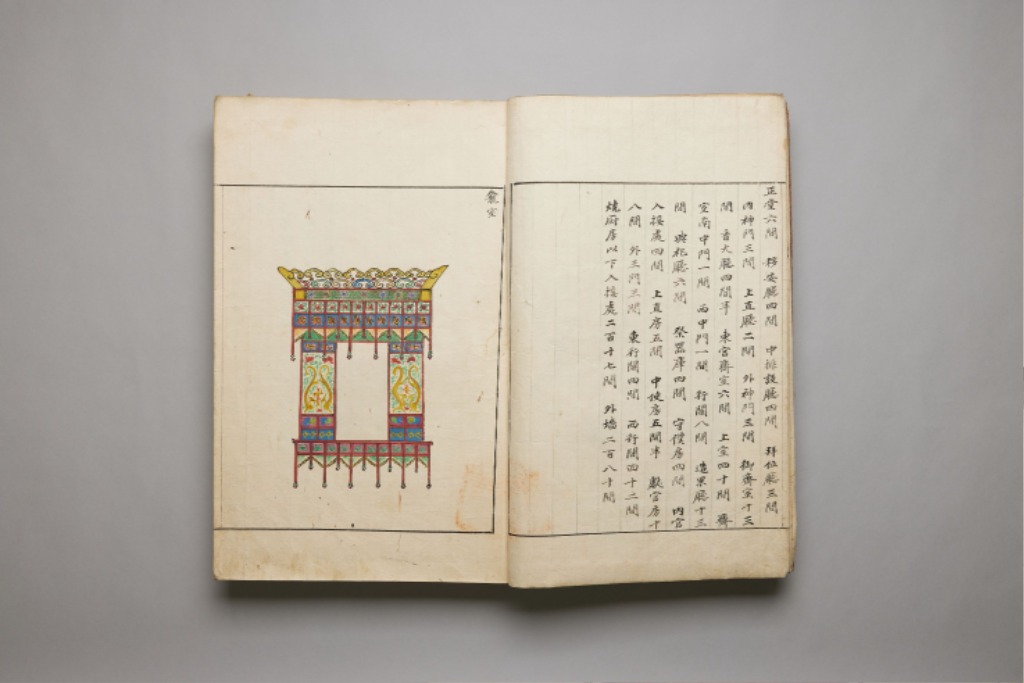 正堂六間 移安廳四間 中排設廳四間 拜位廳三間
内神門三間 上直廳二間 外神門三間 御齋室十三
間 香大廳四間半 東宮齋室六間 上室四十間 齋
室南中門一間 西中門一間 行閣八間 造果廳十三
間 典祀廳六間 祭器庫四間 守僕房四間 内官
入接處四間 上直房五間 中使房五間半 獻官房十
八間 外三門三間 東行閣四間 西行閣四十二間
燒厨房以下入接處二百十七間 外墻二百八十間
龕室